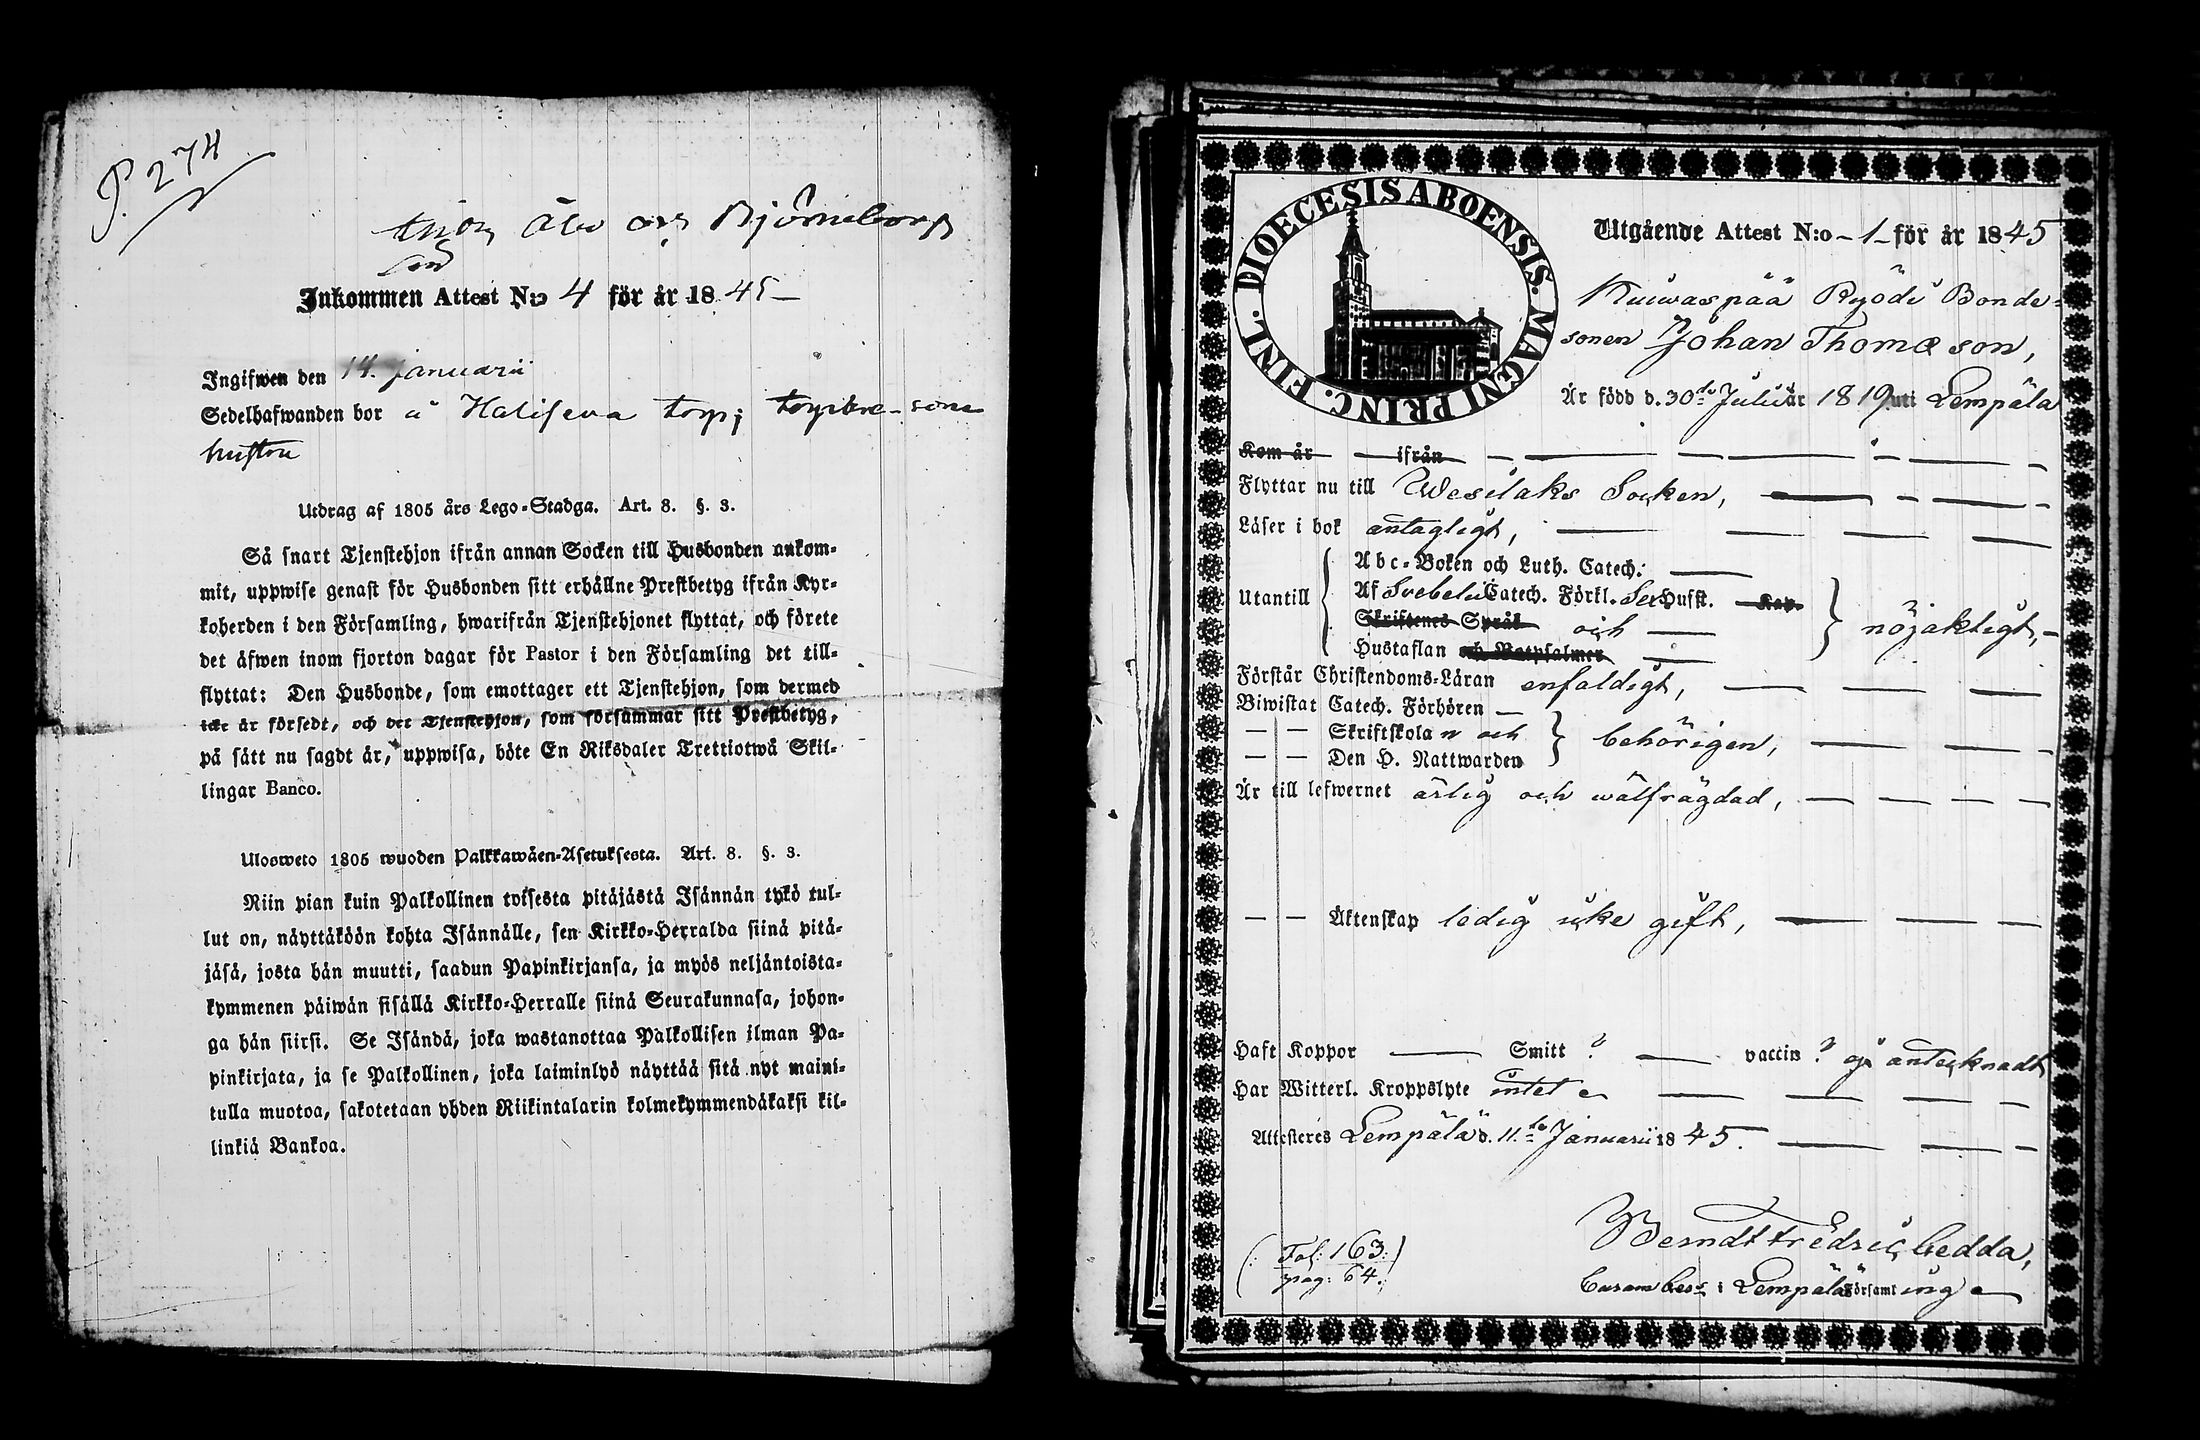 P. 274
Björneborgs
Inkommen Attest N:o 4 för år 1845 –
Ingifwen den 14. Januarii
Sedelhafwanden bor å torp;
hustru
Utdrag af 1805 års Lego-Stadga. Art. 8. §. 3.
Så snart Tjenstehjon ifrån annan Socken till Husbonden ankom-
mit, uppwise genast för Husbonden sitt erhållne Prestbetyg ifrån Kyr-
koherden i den Församling, hwarifrån Tjenstehjonet flyttat, och förete
det äfwen inom fjorton dagar för Pastor i den Församling det till-
flyttat: Den Husbonde, som emottager ett Tjenstehjon, som dermed
icke är försedt, och det Tjenstehjon, som försummar sitt Prestbetyg,
på sätt nu sagdt är, uppwisa, böte En Riksdaler Trettiotwå Skil-
lingar Banco.
Ulosweto 1805 wuoden Palkkawäen-Asetuksesta. Art. 8. §. 3.
Niin pian kuin Palkollinen toisesta pitäjästä Isännän tykö tul-
lut on, näyttäköön kohta Isännälle, sen Kirkko-Herralda siinä pitä-
jäsä, josta hän muutti, saadun Papinkirjansa, ja myös neljäntoista-
kymmenen päiwän sisällä Kirkko-Herralle siinä Seurakunnasa, johon-
ga hän siirsi. Se Isändä, joka wastanottaa Palkollisen ilman Pa-
pinkirjata, ja se Palkollinen, joka laiminlyö näyttää sitä nyt maini-
tulla muotoa, sakotetaan yhden Riikintalarin kolmekymmendäkaksi kil-
linkiä Bankoa.
DIOECESIS ABOENSIS. MAGNI PRINC. FINL.
Utgående Attest N:o – 1 – för år 1845
Kuiwaspää Ryödi Bonde-
sonen Johan Thomæ son,
Är född d. 30de Julii år 1819 uti Lempäla
Kom år ifrån
Flyttar nu till Wesilaks Socken,
Läser i bok antagligt,
Utantill
Abc-Boken och Luth. Catech.
Af Svebelii Catech. Förkl. Sex Hufst. Kap.
Skriftenes Språk och
Hustaflan och Botpsalmer
nöjaktigt,
Förstår Christendoms-Läran enfaldigt,
Biwistat Catech. Förhören
— — Skriftskolan och
— — Den H. Nattwarden
behörigen,
Är till lefwernet ärlig och wälfrägdad,
— — Äktenskap ledig icke gift,
Haft Koppor Smitt ? vaccin ? ej antecknadt
Har Witterl. Kroppslyte intet
Attesteres Lempälä d. 11te Januarii 1845.
Berndt Fredric Gedda,
i Lempälä Församling
(: Fol: 163:)
pag: 64.